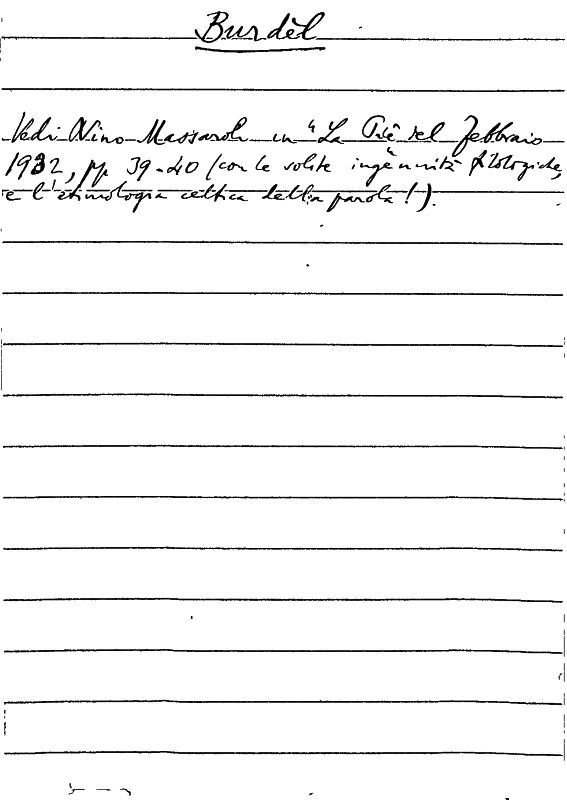 Burdèl
Vedi Nino Massaroli in "La Piê" del Febbraio
1932, pp. 39-40 (con le solite ingenuità filologiche,
e l'etimologia celtica della parola!).